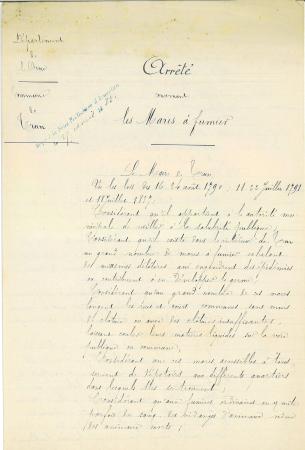 Département
de
l'Orne
Commune
de
Tran
Arrêté
concernant
les Mares à fumier
Le Maire de Tran
Vu les lois des 16-24 août 1790, 19-22 Juillet 1791
et 18 Juillet 1837;
Considérant qu'il appartient à l'autorité mu-
nicipale de veiller à la salubrité publique;
Considérant qu'il existe dans l'intérieur de Tran
un grand nombre de mares à fumier exhalant
des miasmes délétères qui engendrent des épidémies
ou contribuent à en développer le germe;
Considérant qu'un grand nombre de ces mares
bordent les rues et cours communes sans murs
de clôture ou avec des clôtures insuffisantes,
laissent couler leurs matières liquides sur la voie
publique ou commune;
Considérant que ces mares accessibles à tous
servent de dépotoirs aux différents quartiers
dans lesquels elles se trouvent;
Considérant qu'aux fumiers ordinaires on y mêle
parfois du sang, des vidanges d'animaux même
des animaux morts;